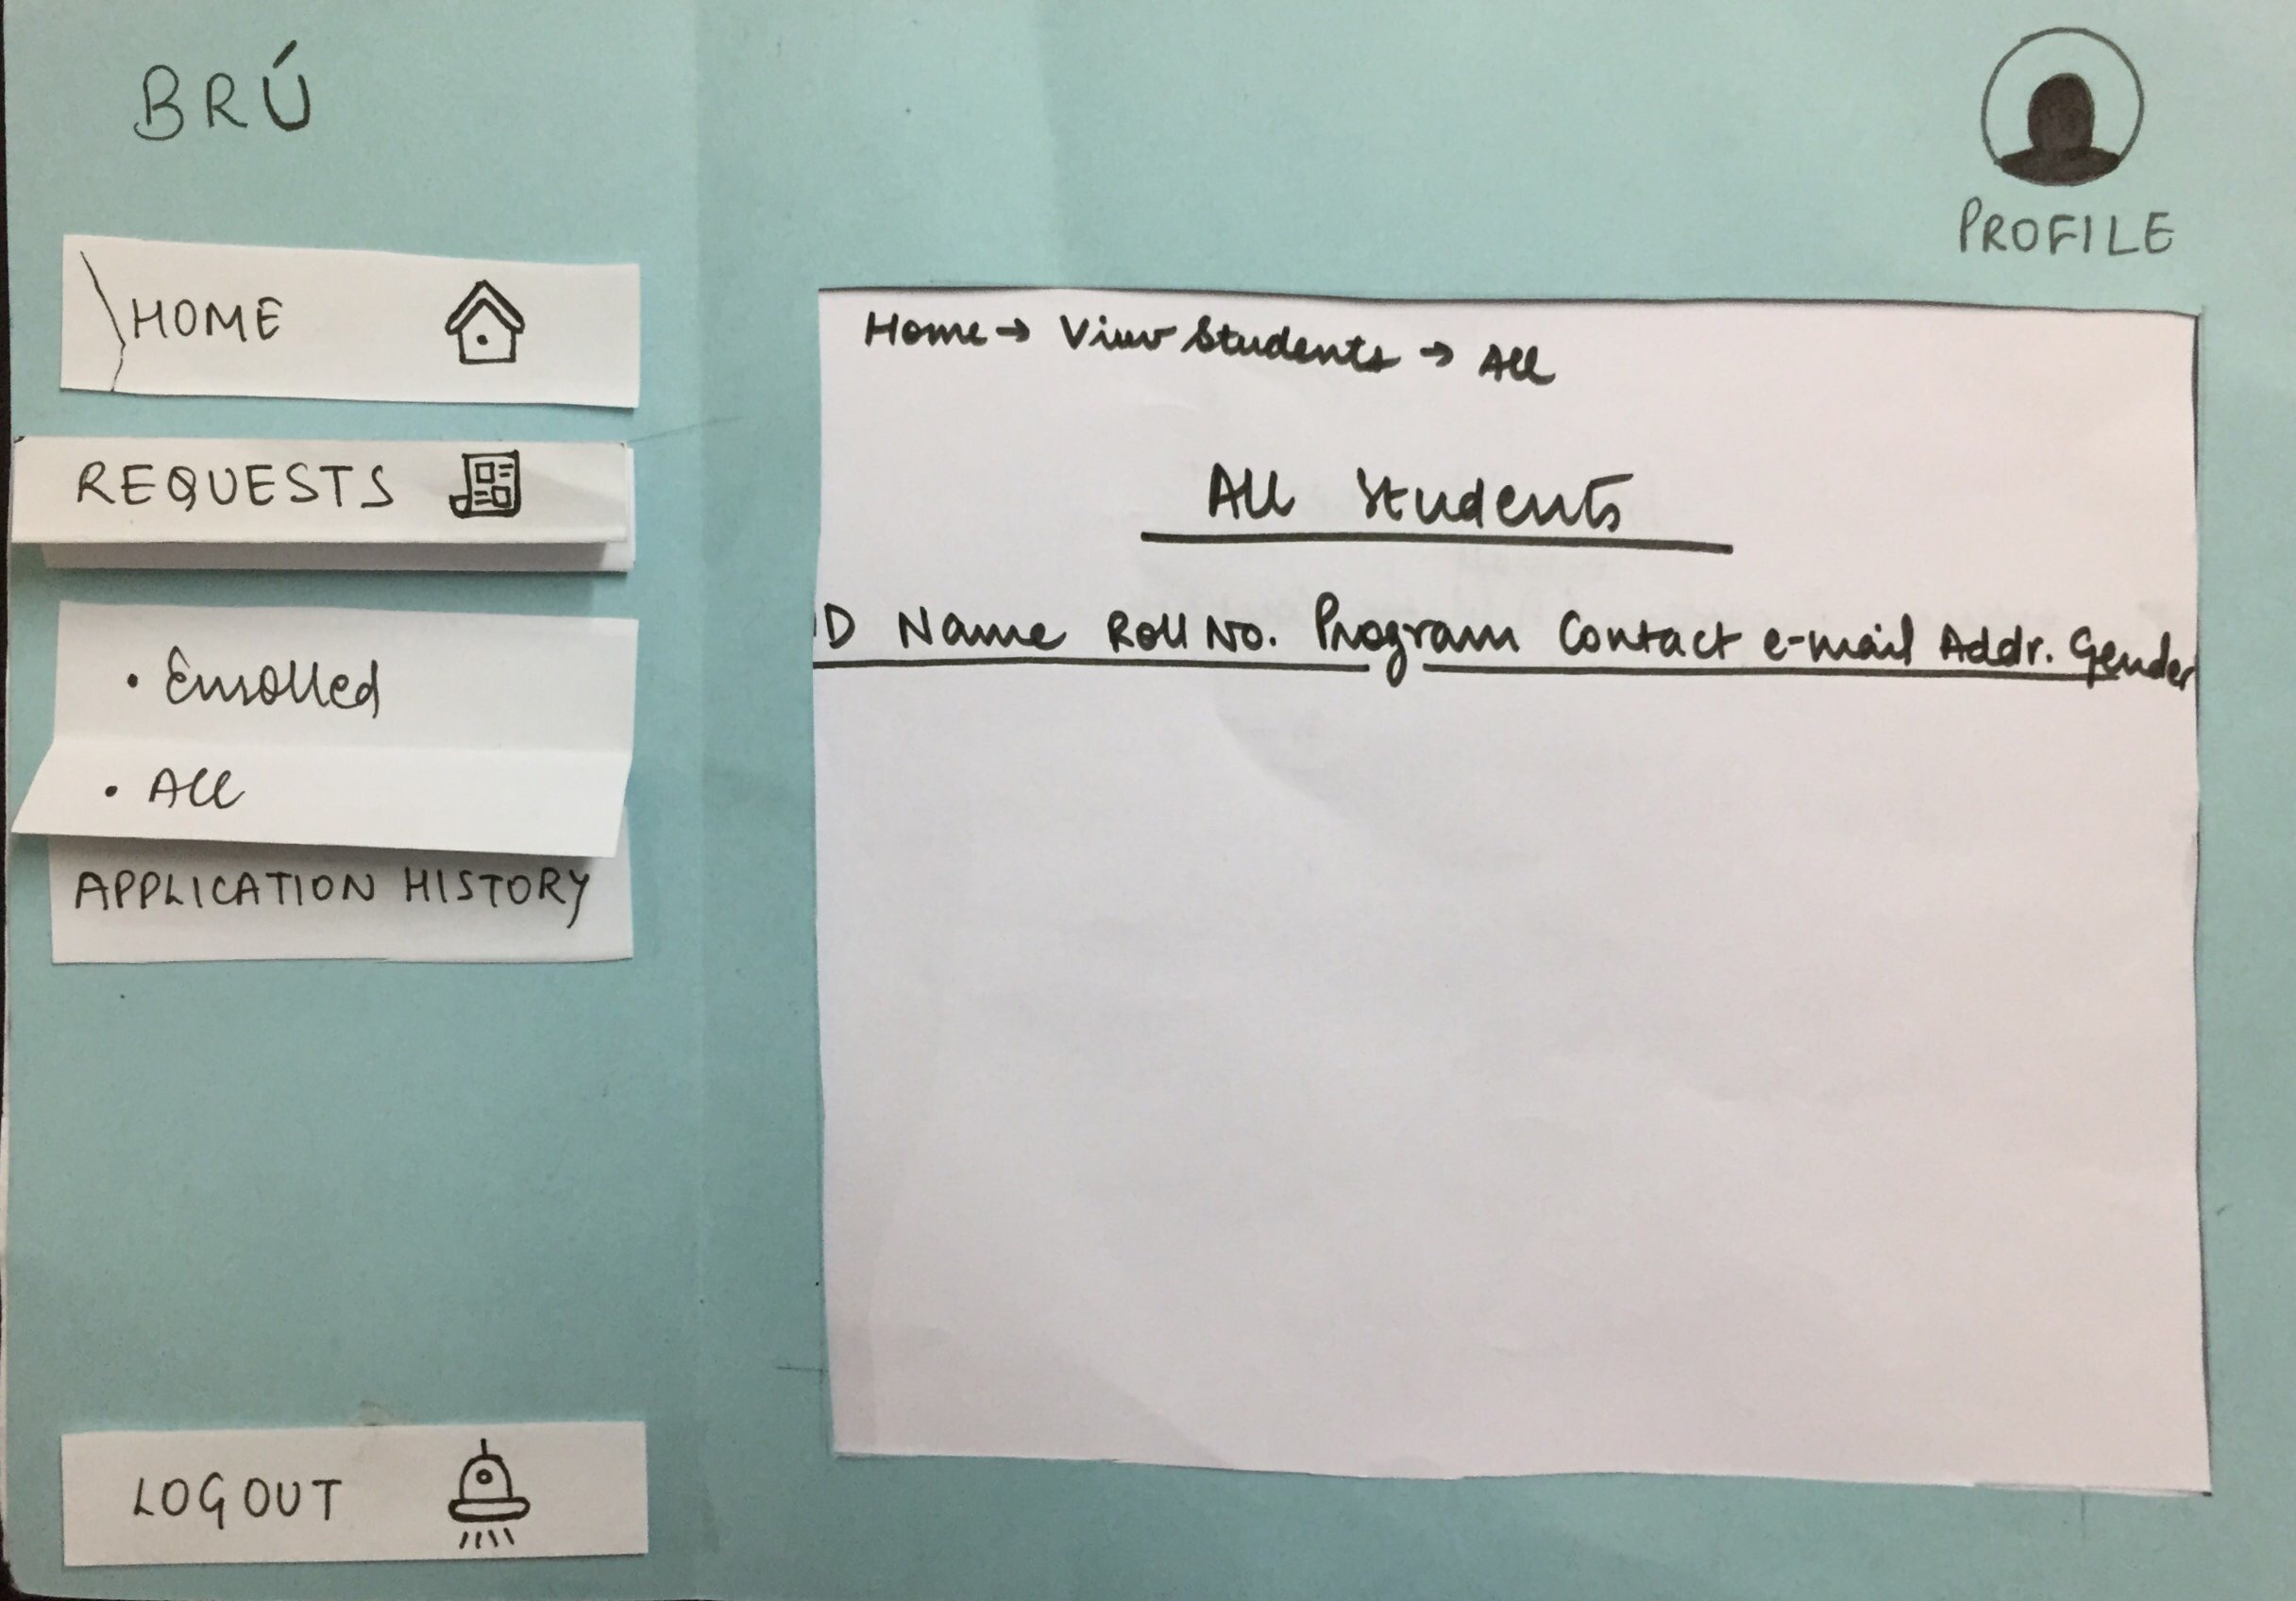 BRÚ
PROFILE
HOME
REQUESTS
• Enrolled
• All
APPLICATION HISTORY
LOGOUT
Home → View Students → All
All Students
ID Name Roll No. Program Contact e-mail Addr. Gender